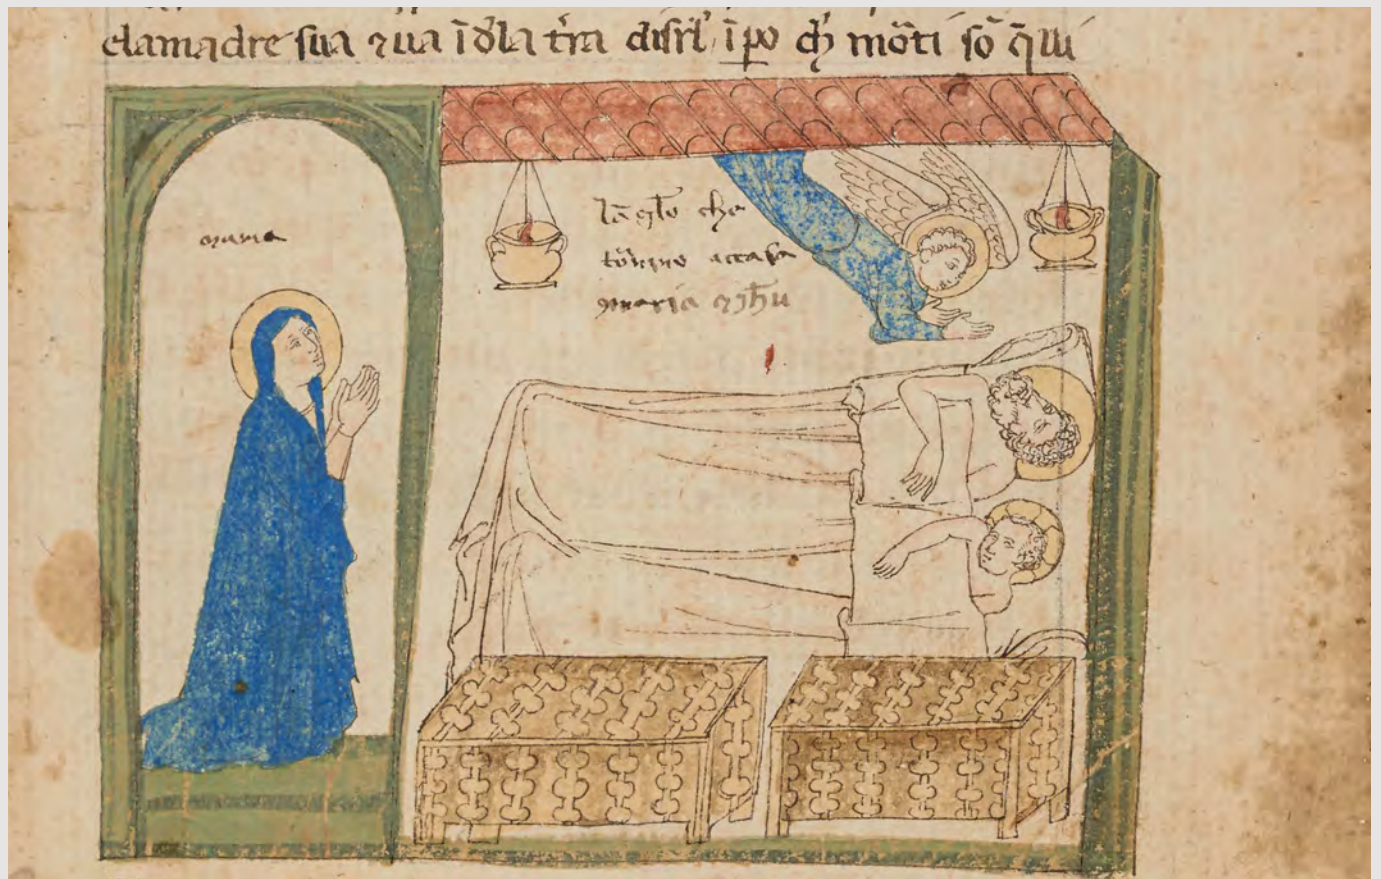 elamadre sua ⁊ ua ĩ d̃la tr̃a disrl̃ ĩpo ch̃ mõti sõ q̃lli
maria
lãg̃lo che
tornino accasa
maria ⁊ yħu